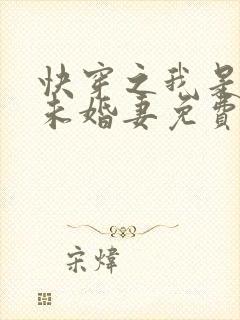 快穿之我是
未婚妻免費
宋煒